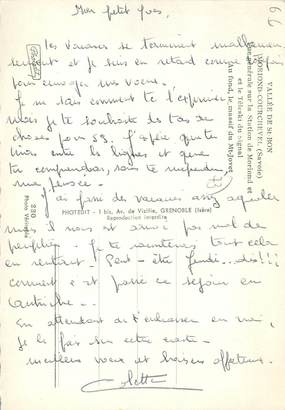 Mon petit Yves,
Les vacances se terminent malheureu-
sement et je suis en retard comme toujours
pour envoyer mes vœux.
Je ne sais comment te l'exprimer
mais je te souhaite des tas de
choses pour 59. J'espère que tu
liras entre les lignes et que
tu comprendras, sans te méprendre,
ma pensée.
J'ai passé des vacances assez
mais il nous est arrivé pas mal de
péripéties. Je te raconterai tout cela
en rentrant. Peut-être jeudi...!!!
comment s'est passé ce séjour en
Autriche...
En attendant de t'embrasser en
je le fais sur cette carte.
meilleurs vœux et baisers affectueux.
Colette
VALLÉE DE St-BON
MORIOND-COURCHEVEL (Savoie)
Vue générale sur la Station de Moriond et
et le Téléski du signal
Au fond, le massif du Mt-Jovet
PHOTEDIT - 1 bis, Av. de Vizille, GRENOBLE (Isère)
Reproduction interdite
230